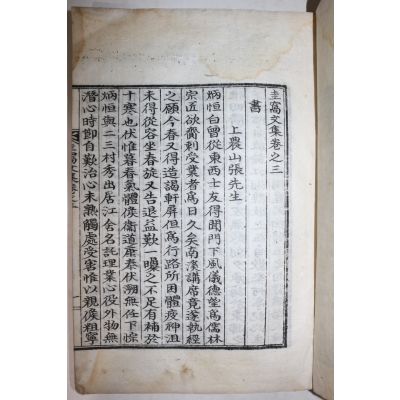 圭窩文集卷之三
書
上農山張先生
炳恒白曾從東西士友得聞門下風儀德望爲儒林
宗匠欲齋刺受業者爲日久矣南溪講席竟遂執經
之願今春又得造謁軒屛但爲行路所困體疲神沮
未得從容坐春旋又告退益歎一曝之不足有補於
十寒也伏惟暮春氣體候衛道康泰伏溯無任下悰
炳恒與二三村秀出居江舍名託理業心役外物無
潛心時節自歎治心未熟觸處受害惟以親候粗寧